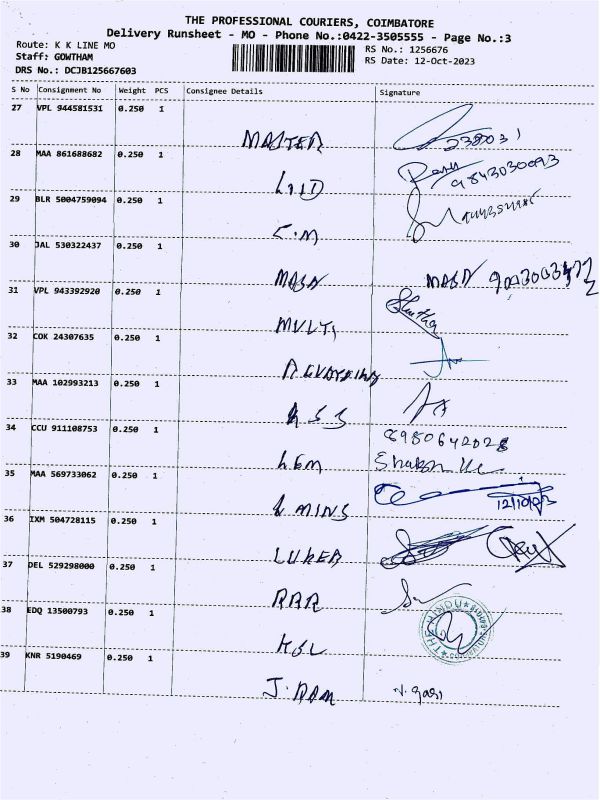 THE PROFESSIONAL COURIERS, COIMBATORE
Delivery Runsheet - MO - Phone No.:0422-3505555 - Page No.:3
Route: K K LINE MO
RS No.: 1256676
Staff: GOWTHAM
RS Date: 12-Oct-2023
DRS No.: DCJB125667603
S No Consignment No Weight PCS Consignee Details Signature
27 VPL 944581531 0.250 1
MASTER
28 MAA 861688682 0.250 1
9843030093
29 BLR 5004759094 0.250 1
C.M
30 JAL 530322437 0.250 1
MASN MASN
31 VPL 943392920 0.250 1
MULTI
32 COK 24307635 0.250 1
33 MAA 102993213 0.250 1
KSS
34 CCU 911108753 0.250 1
8980642028
LGM
35 MAA 569733062 0.250 1
12/10/23
MINS
36 IXM 504728115 0.250 1
LUKER
37 DEL 529298000 0.250 1
RRR
38 EDQ 13500793 0.250 1
THE HINDU
KSL
39 KNR 5190469 0.250 1
J. RAM